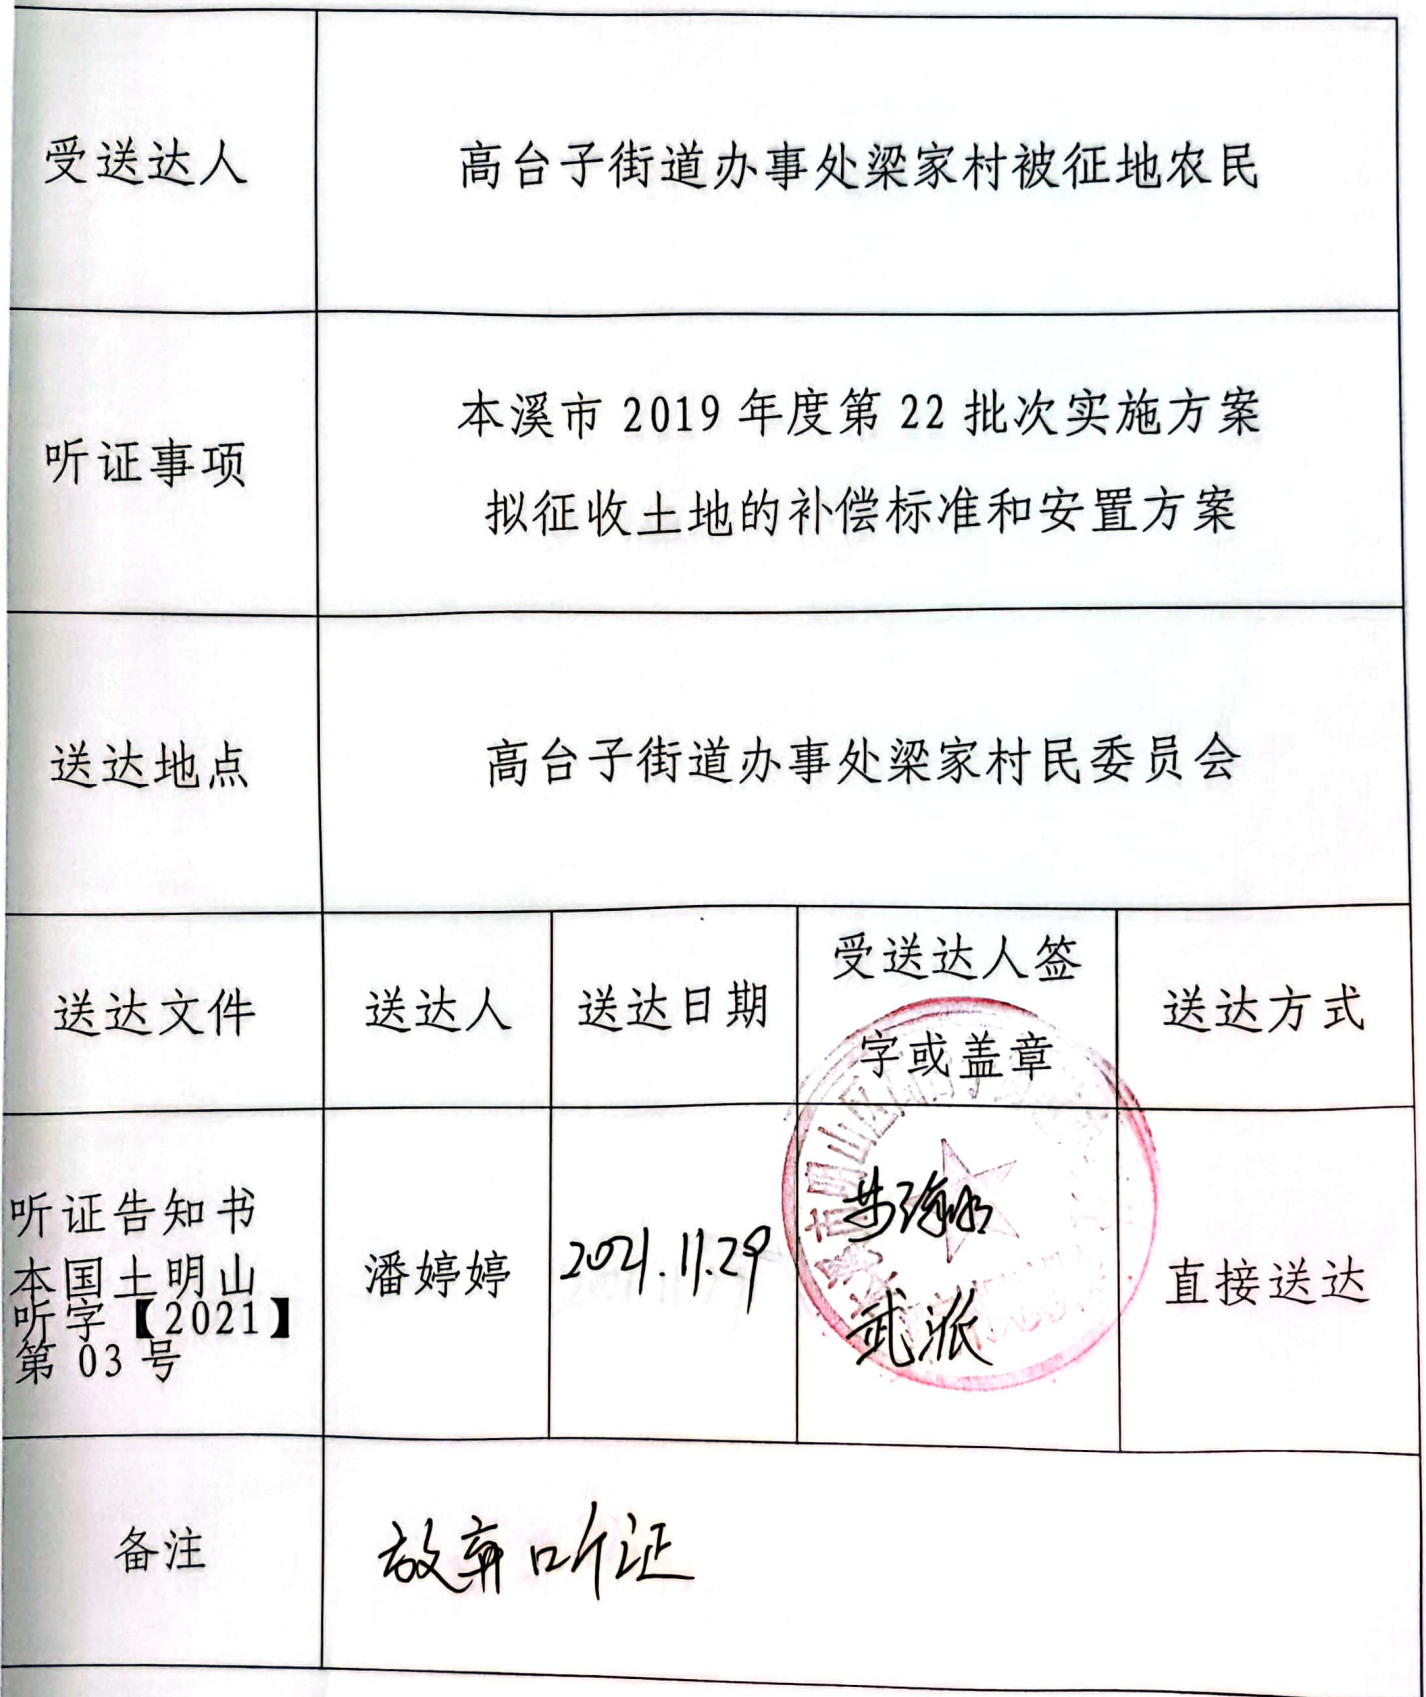 受送达人
高台子街道办事处梁家村被征地农民
听证事项
本溪市 2019 年度第 22 批次实施方案
拟征收土地的补偿标准和安置方案
送达地点
高台子街道办事处梁家村民委员会
送达文件
送达人
送达日期
受送达人签
字或盖章
送达方式
听证告知书
本国土明山
听字【2021】
第 03 号
潘婷婷
2021.11.29
武派
直接送达
备注
放弃听证